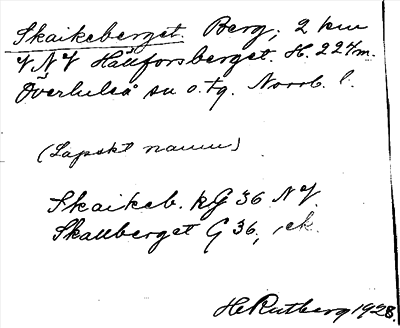 Skaikeberget. Berg, 2 km
VNV Hällforsberget. H. 227 m.
Överluleå sn o. tg. Norrb. l.
(Lapskt namn)
Skaikeb. kG 36 NV
Skallberget G 36, ek.
H Rutberg 1928.